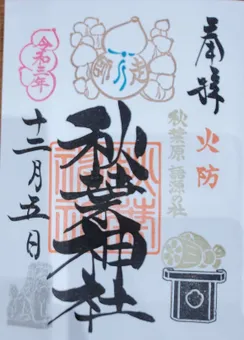 奉拝
火防
秋葉原語源の社
師走
秋葉神社
令和三年
十二月五日